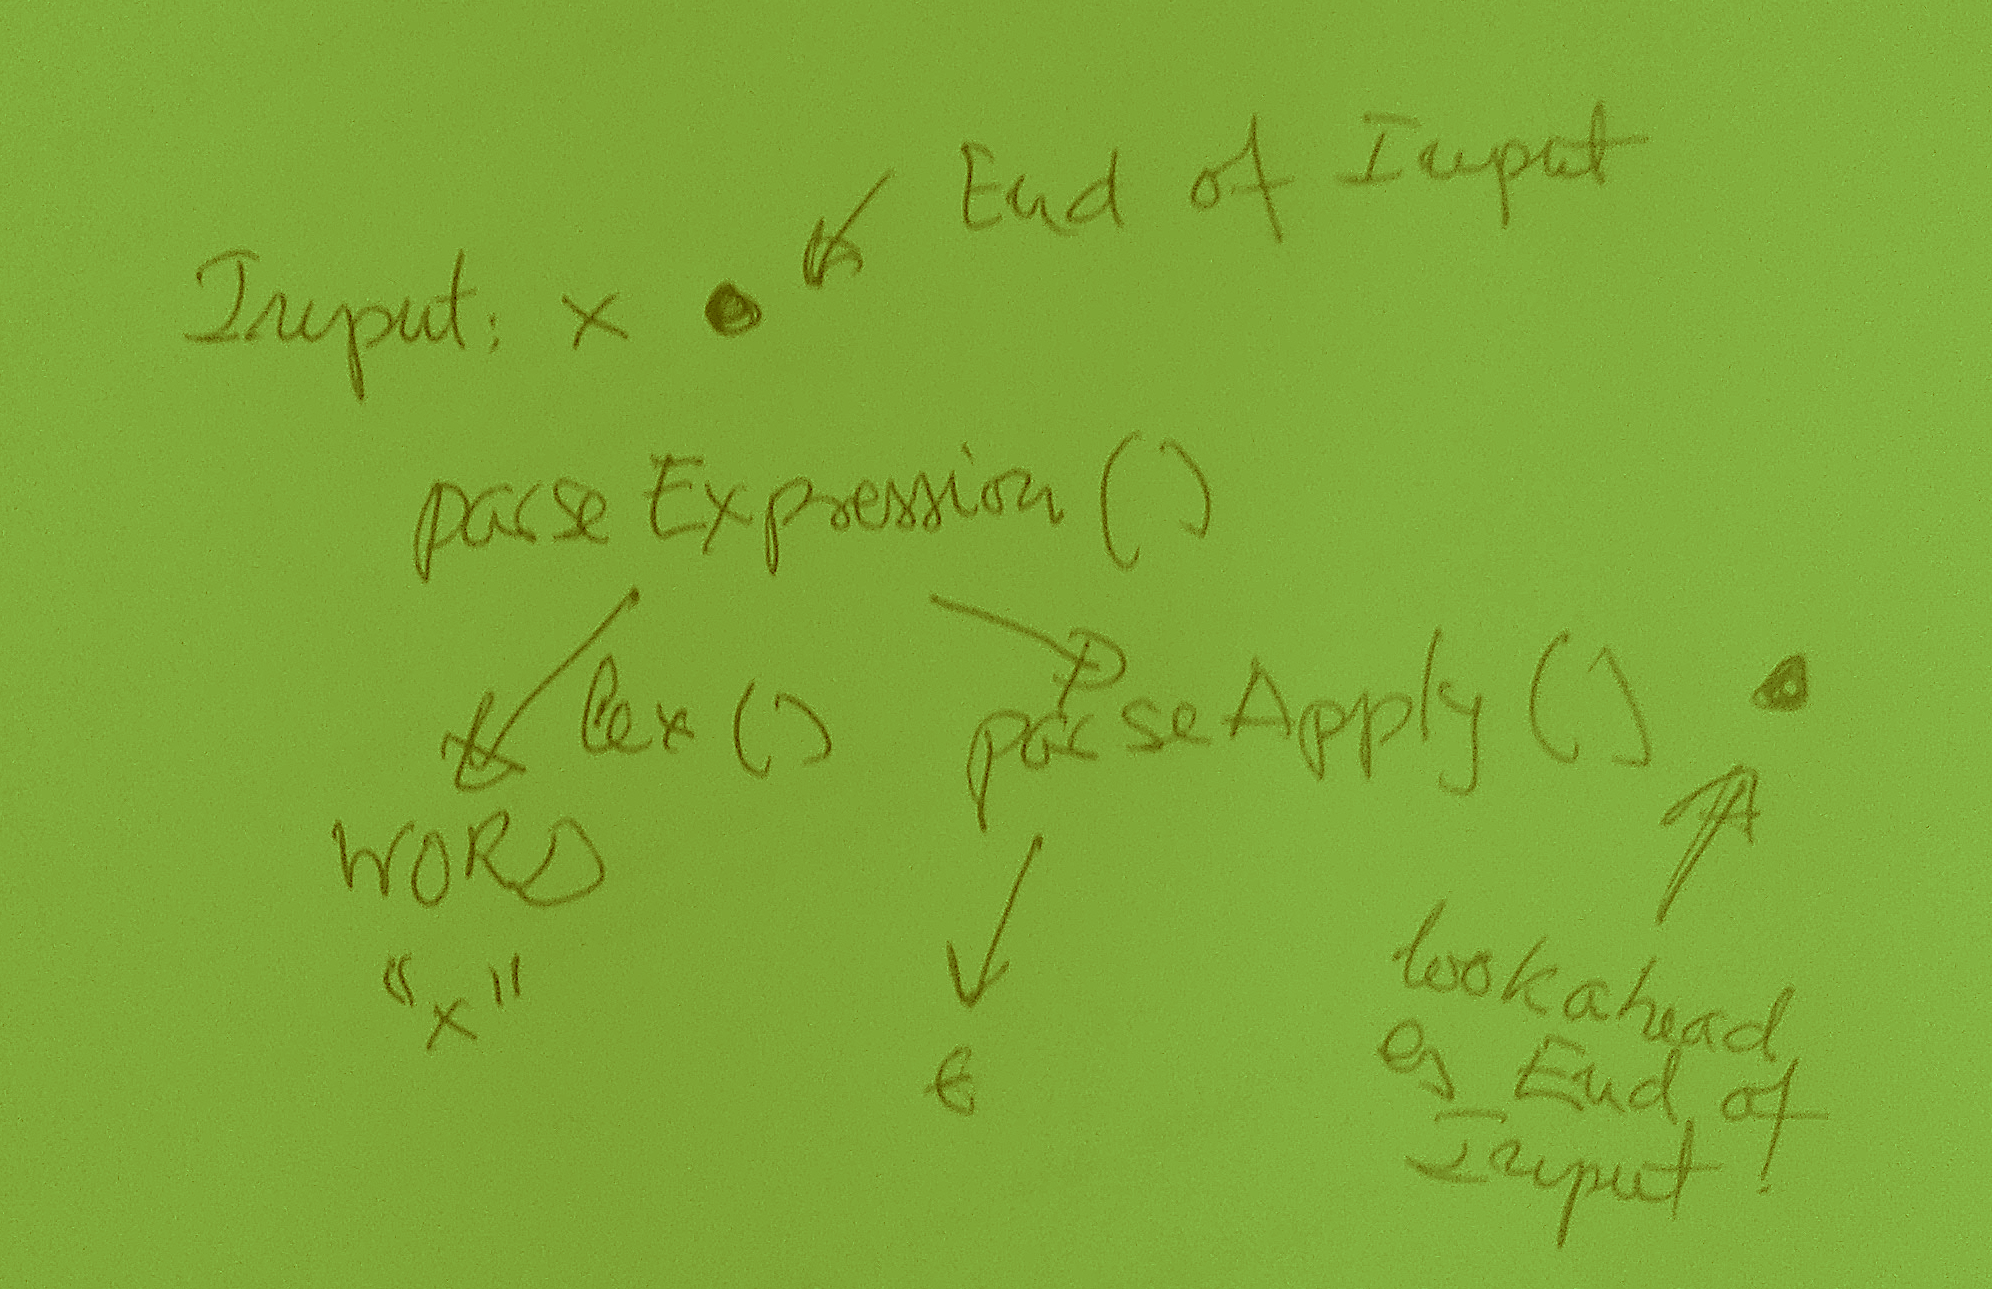 End of Input
Input: x ●
parseExpression()
lex() parseApply() ●
WORD
"x"
ϵ
lookahead
es End of
Input!